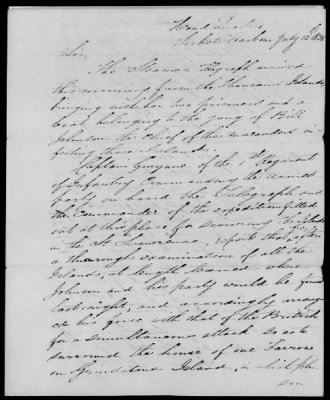 Head Quarters
Sackets Harbor July 12th 1838
Sir,
The Steamer Telegraph arrived
this morning from the Thousand Islands
bringing with her two prisoners and a
boat belonging to the gang of Bill
Johnson the Chief of the marauders in-
festing those Islands.
Captain Gwynne of the 1st Regiment
of Infantry Commanding the armed
party on board the Telegraph and
the Commander of the expedition fitted
out at this place for scouring the Islands
in the St Lawrence, reports that, after
a thorough examination of all the
Islands, at length learned where
Johnson and his party would be found
last night, and accordingly arranged
his force with that of the British
for a simultaneous attack so as to
surround the house of one Farrow
on Grindstone Island, in which John-
son